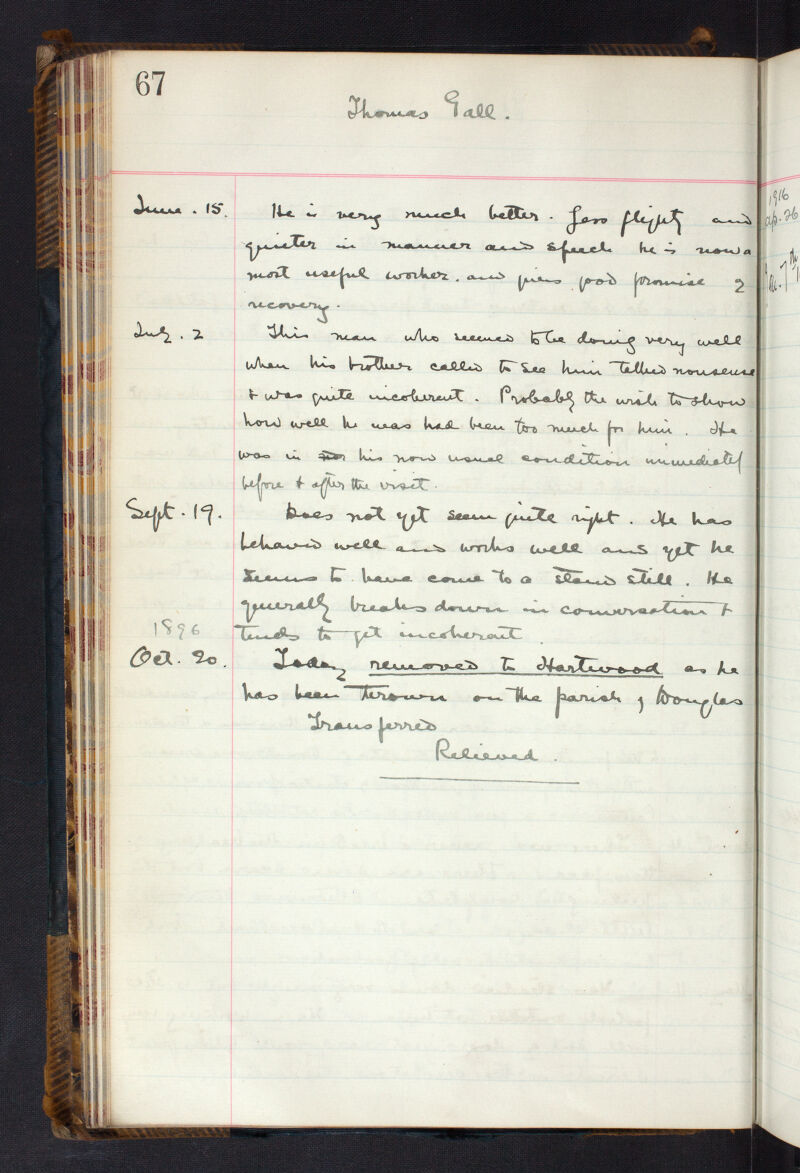 67
Thomas Gall.
June. 15. He is very much better. Less flighty and
quieter in manner and speech he is now a
most useful worker. and gives good promise of
recovery.
July. 2 This man who seemed to be doing very well
when his brother called to see him talked nonsense
& was quite incoherent. Probably the wish to show
how well he was had been too much for him. He
was in his now usual condition immediately
before & after the visit.
Sept. 19. Does not yet seem quite right. He has
behaved well and works well and yet he
seems to have come to a stand still. He
generally breaks down in conversation &
1896 tends to get incoherent.
Oct. 20. Today removed to Hartwood as he
has been thrown on the parish of Douglas
Transferred
Relieved.
1916
Ap. 26